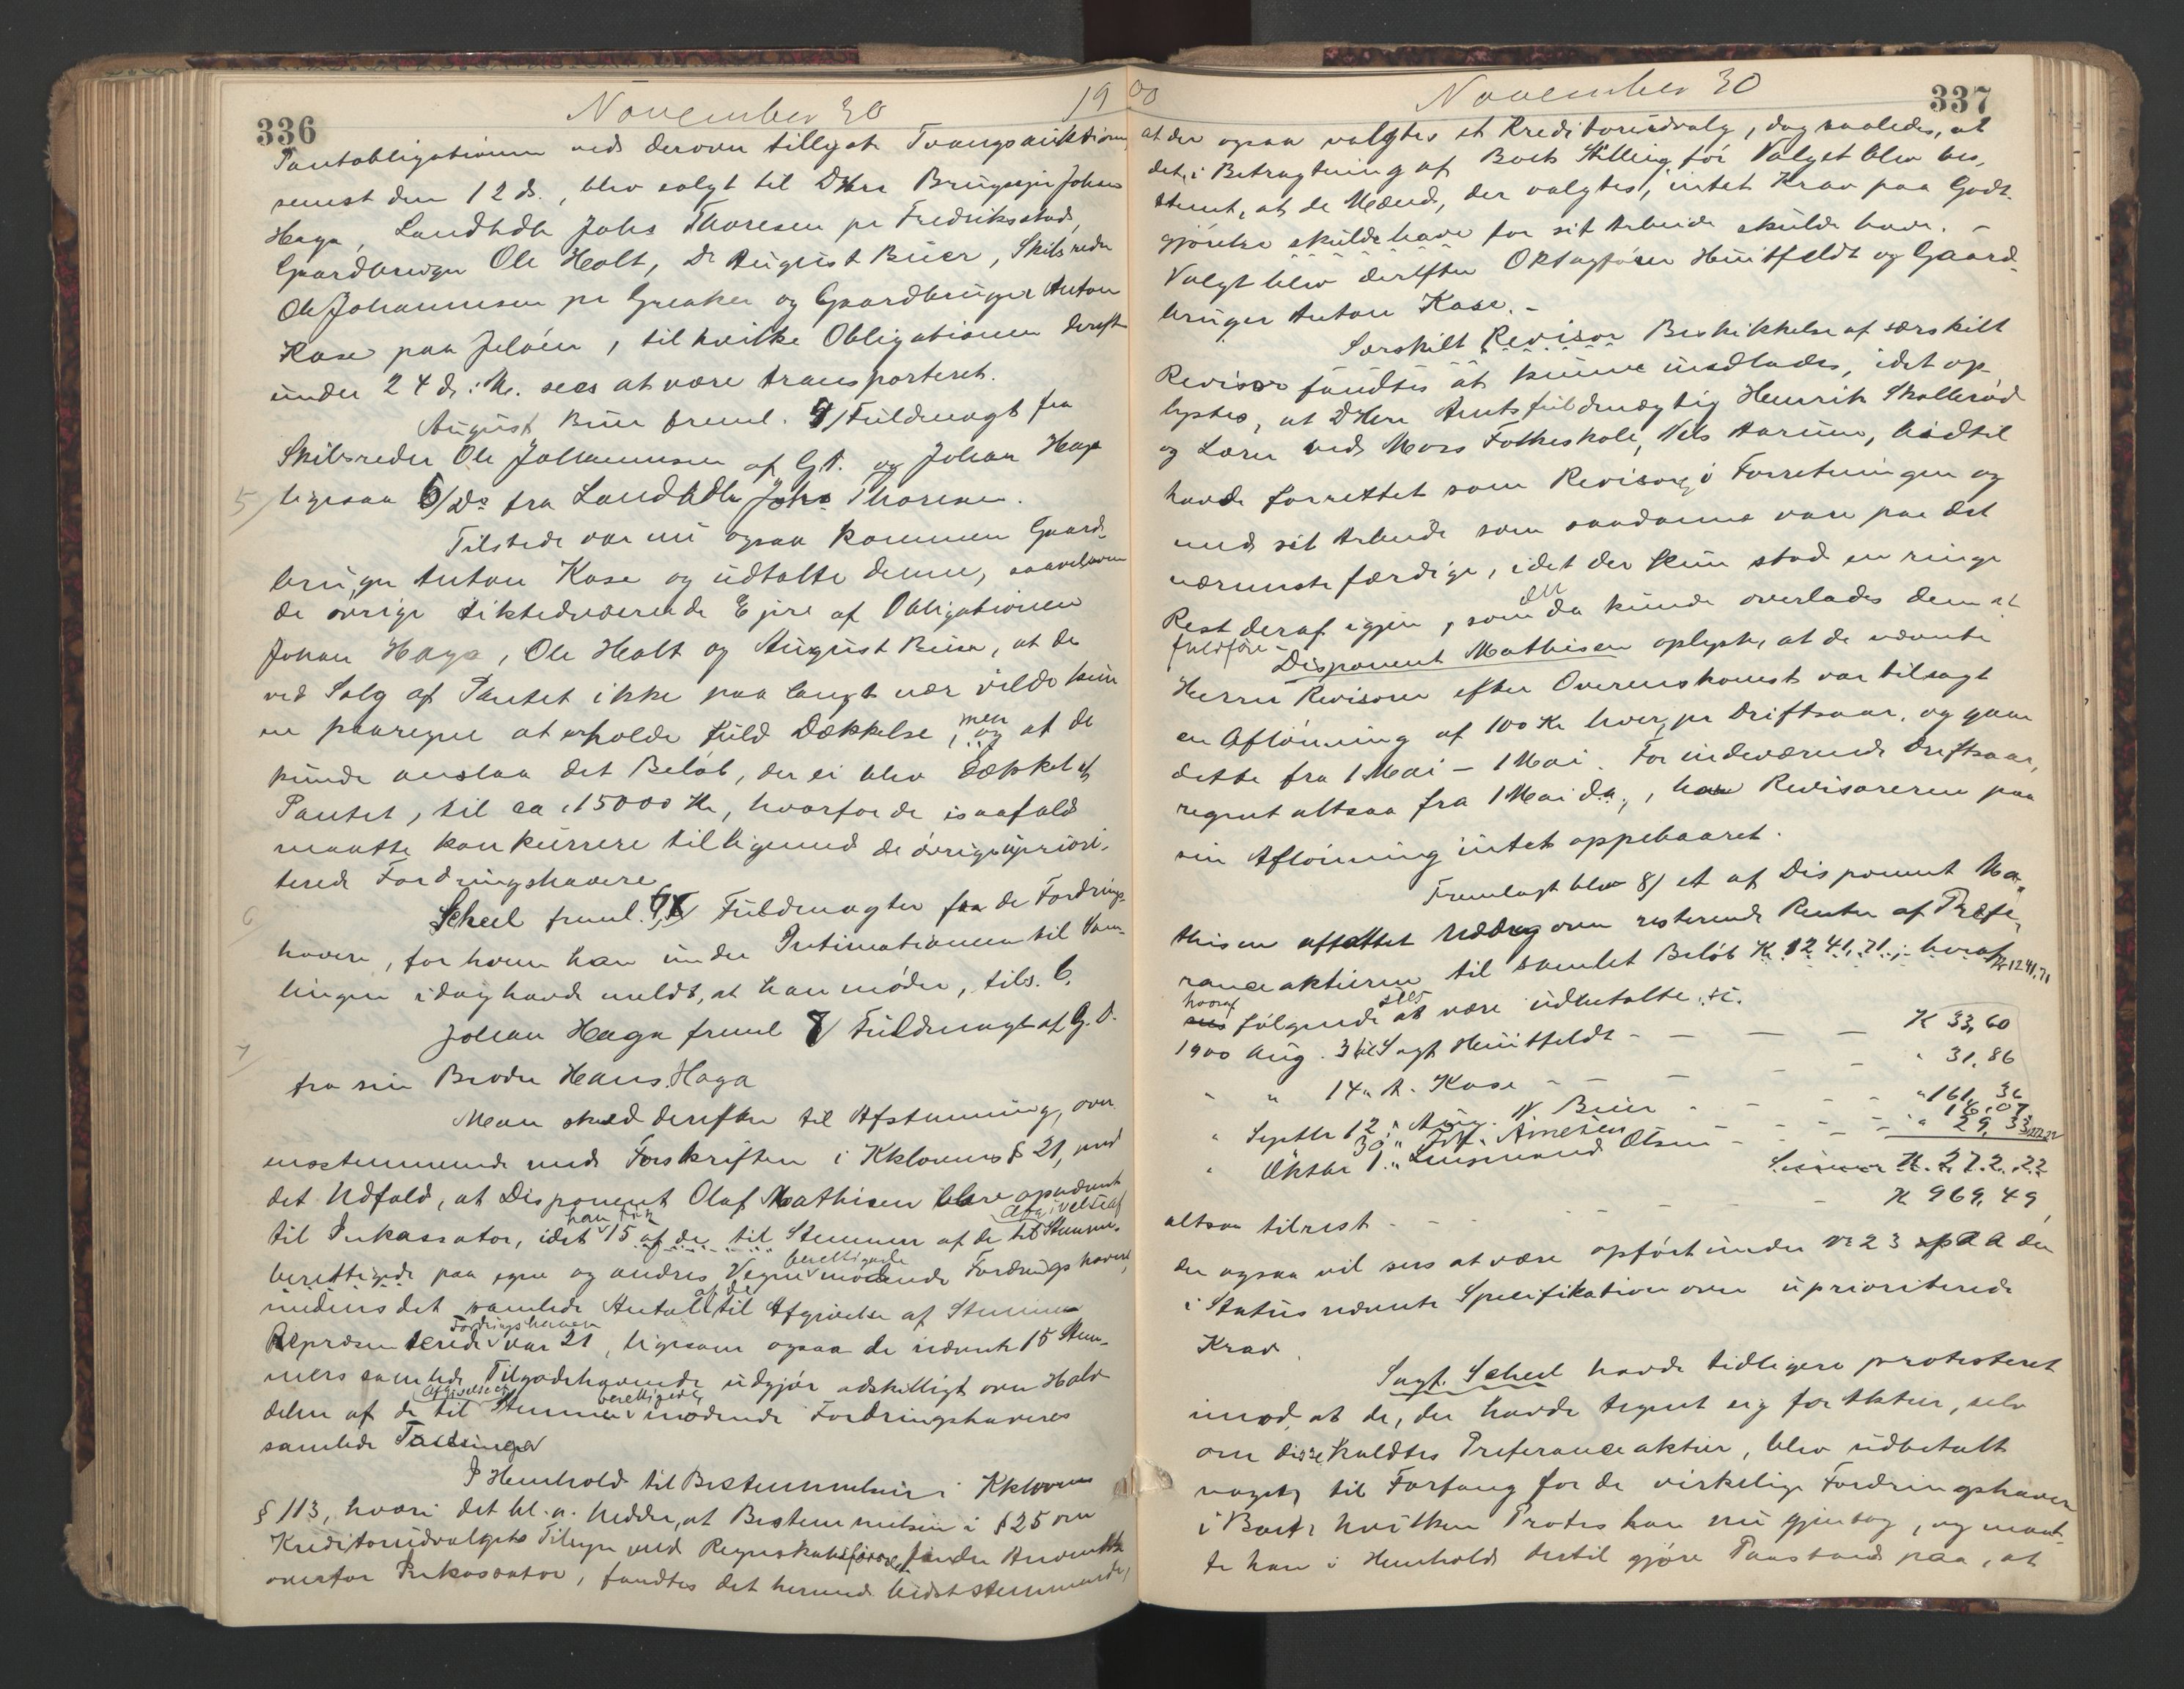 336
November 30
19
Pantobligationen ved derover tillyst Tvangsauktion,
senest den 12 ds., blev solgt til DHrr Brugseier Johan
Haga, Landhdlr Johs Thoresen pr Fredriksstad,
Gaardbruger Ole Holt, Dr August Buer, Skibsreder
Ole Johannesen pr Greaker og Gaardbruger Anton
Kase paa Jeløen, til hvilke Obligationen derefter
under 24 ds. sees at være transporteret.
August Buer freml. 4/ Fuldmagt fra
Skibsreder Ole Johannesen af G.D. og Johan Haga
5/ ligesaa 5/ Do fra Landhdlr Johs Thoresen.
Tilstede var nu ogsaa kommen Gaard-
bruger Anton Kase og udtalte denne, saavelsom
de øvrige tilstedeværende Ejere af Obligationen
Johan Haga, Ole Holt og August Buer, at de
ved Salg af Pantet ikke paa langt nær vilde kun-
ne paaregne at erholde fuld Dækkelse, og men at de
kunde anslaa det Beløb, der ei blev dækket af
Pantet, til ca. 15000 Kr, hvorfor de isaafald
maatte konkurrere tilligemed de øvrige uprioriterede
Fordringshavere
6
Scheel freml. Fuldmagter fra de Fordrings-
havere, for hvem han under Intimationen til Sam-
lingen idag havde meldt, at han møder, tils. 6.
Johan Haga freml 8/ Fuldmagt af G. D.
7/
fra sin Broder Hans Haga
Man skred derefter til Afstemning, over-
ensstemmende med Forskriften i Kklovens § 21, med
det Udfald, at Disponent Olaf Mathisen blev opnævnt
til Inkassator, idet han fik 15 af de til Stemmer af de til Afgivelse af Stemme
berettigede paa egne og andres Vegne berettigede mødende Fordringshavere,
medens det samlede Antal af de til Afgivelse af Stemme
Repræsenterede Fordringshavere var 21, ligesom ogsaa de nævnte 15 Stem-
mers samlede Tilgodehavende udgjør adskilligt over Halv-
delen af de til Afgivelse af Stemme berettigede mødende Fordringshaveres
samlede
I Henhold til Bestemmelsen i Kklovens
§ 113, hvori det bl. a. hedder, at Bestemmelsen i § 25 om
Kreditorudvalgets Tilsyn med Regnskabsførsel finder Anvendelse
overfor Inkassator, fandtes det hermed bedst stemmende,
00
November 30
337
at der ogsaa valgtes et Kreditorudvalg, dog saaledes, at
det, i Betragtning af Boets Stilling før Valget blev be-
stemt, at de Mænd, der valgtes, intet Krav paa Godt-
gjørelse skulde have for sit Arbeide skulde have. –
Valgt blev derefter ORSagfører Huitfeldt og Gaard-
bruger Anton Kase. –
Særskilt Revisor Beskikkelse af særskilt
Revisor fandtes at kunne undlades, idet op-
lystes, at DHrr Amtsfuldmægtig Henrik Skollerød
og Lærer ved Moss Folkeskole, Nils Aarum, hidtil
havde forrettet som Revisorer i Forretningen og
med sit Arbeide som saadanne vare paa det
nærmeste færdige, idet der kun stod en ringe
Rest deraf igjen, som det da kunde overlades dem at
fuldføre –
Disponent Mathisen oplyste, at de nævnte
Herrer Revisorer efter Overenskomst var tilsagt
en Aflønning af 100 Kr hver, pr Driftsaar, og gaar
dette fra 1 Mai – 1 Mai. For indeværende Driftsaar,
regnet altsaa fra 1 Mai d.a., har Revisorerne paa
sin Aflønning intet oppebaaret.
Fremlagt blev 8/ et af Disponent Ma-
thisen affattet Uddrag over resterende Renter af Præfe-
ranceaktierne til samlet Beløb Kr. 1241,71, hvoraf Kr 1241,71
hvoraf følgende sees at være udbetalte:
1900 Aug. 3 til Sagf Huitfeldt – – – K 33,60
" " 14 " A. Kase – – – " 31,86
" Septbr 12 " Aug. N. Buer – – – " 161,36
30 " Arnesen 16,07
" Oktbr 1 " Lensmand Olsen – – – " 29,33
Summa K. 272,22
altsaa tilrest – – – K 969,49,
der ogsaa vil sees at være opført under No 23 paa den
i Status nævnte Specifikation over uprioriterede
Krav.
Sagf. Scheel havde tidligere protesteret
imod, at de, der havde tegnet sig for Aktier, selv
om disse kaldtes Preferanceaktier, blev udbetalt
noget, til Forfang for de virkelige Fordringshavere
i Boet, hvilken Protest han nu gjentog, og maat-
te han i Henhold dertil gjøre Paastand paa, at